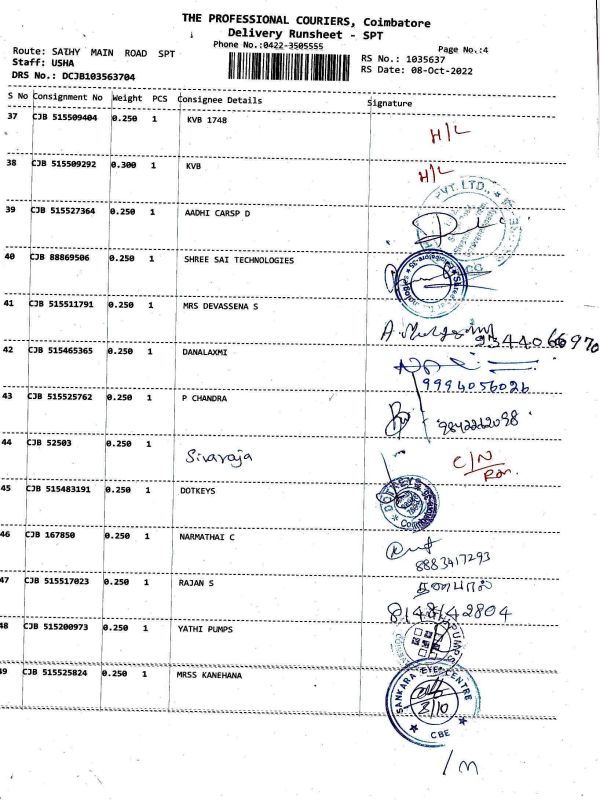 THE PROFESSIONAL COURIERS, Coimbatore
Delivery Runsheet - SPT
Phone No.:0422-3505555
Page No.:4
Route: SATHY MAIN ROAD SPT
RS No.: 1035637
Staff: USHA
RS Date: 08-Oct-2022
DRS No.: DCJB103563704
S No Consignment No Weight PCS Consignee Details Signature
37 CJB 515509404 0.250 1 KVB 1748 H/L
38 CJB 515509292 0.300 1 KVB H/L
PVT. LTD.,
39 CJB 515527364 0.250 1 AADHI CARSP D
40 CJB 88869506 0.250 1 SHREE SAI TECHNOLOGIES
41 CJB 515511791 1 0.250 MRS DEVASSENA S
9344066970
42 CJB 515465365 0.250 1 DANALAXMI
9994056026
43 CJB 515525762 0.250 1 P CHANDRA
9842212098
44 CJB 52503 0.250 1 Sivaraja C/N
45 CJB 515483191 0.250 1 DOTKEYS
DOTKEYS
46 CJB 167850 0.250 1 NARMATHAI C
8883417293
47 CJB 515517023 0.250 1 RAJAN S
தனபால்
8148142804
48 CJB 515200973 0.250 1 YATHI PUMPS
PUMPS
49 CJB 515525824 0.250 1 MRSS KANEHANA
SANKARA EYE CENTRE
8/10
CBE